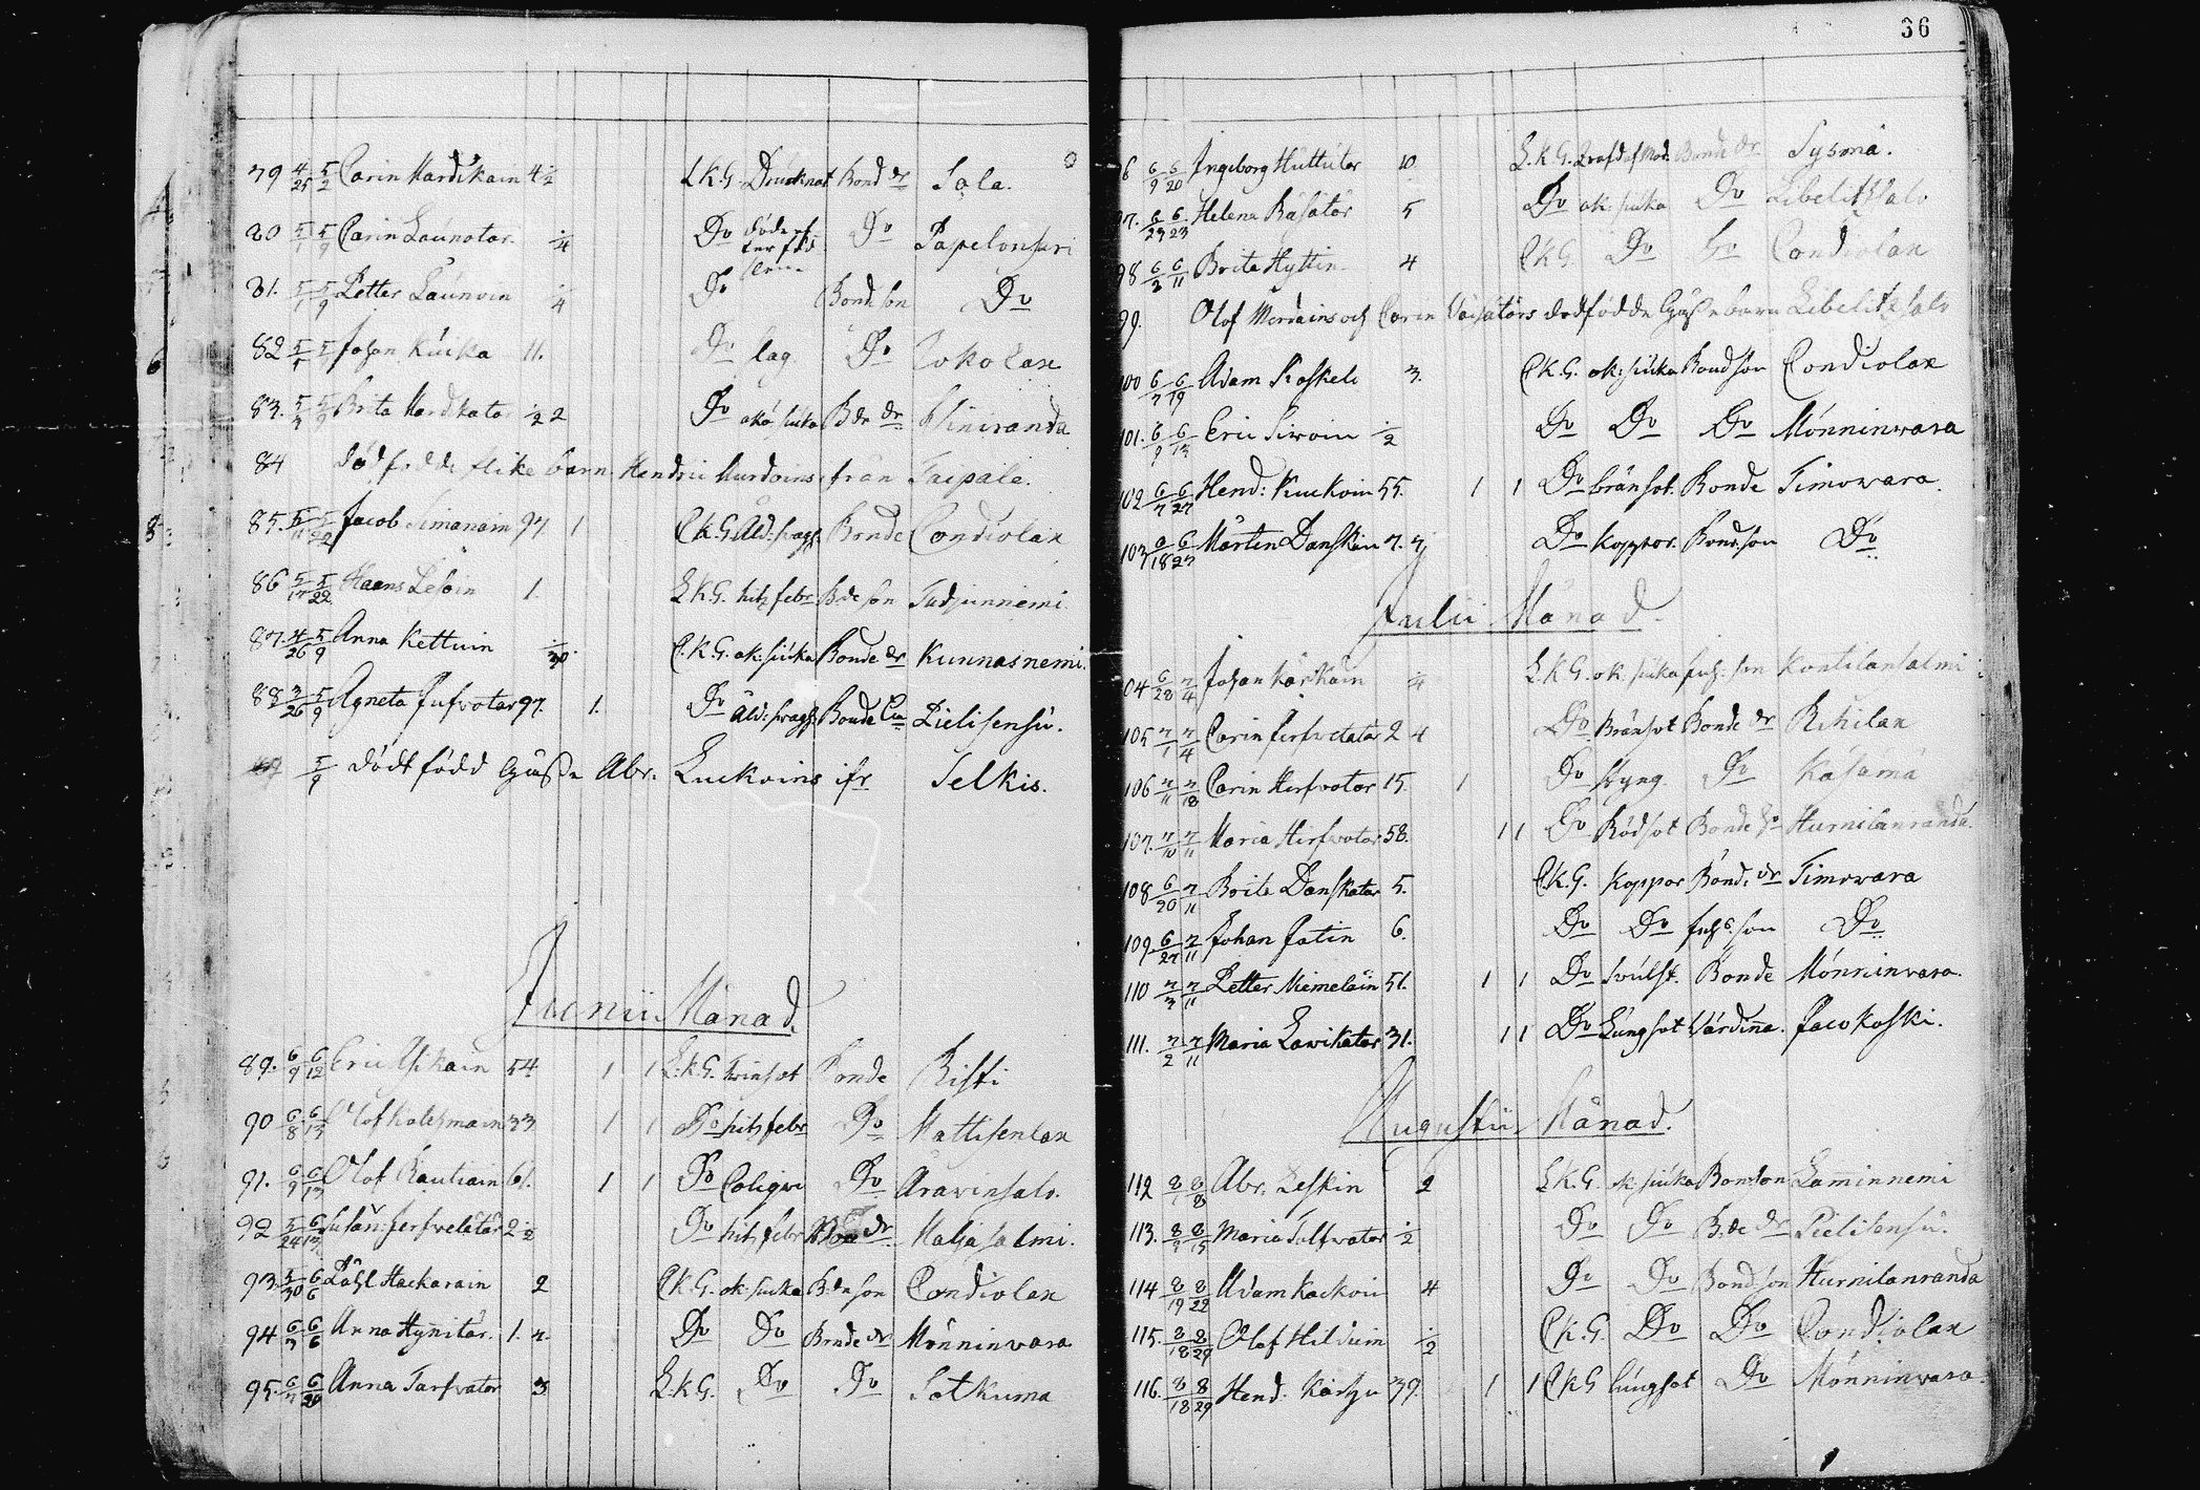 79 4/25 5/2 Carin Hardikain 4 1/2 L.K.G. Drucknat Bond dr Sala.
80 5/1 5/9 Carin Launotar 1/4 Do Do Papelonsari
81. 5/1 5/9 Petter Launoin 1/4 Do Bond son Do
82 Johan Kucka 11. Do lag Do Jokolax
83. Brita Hardkata 1/2 2 Do okä siuka Bde dr
84 dödfödde flike barn Hendric Hurdoins fran Taipale.
85. 5/11 5/22 Jacob Timanain 97 1 C.K.G. Åld: Bonde Condiolax
86 5/17 5/22 Haans Lesoin 1. L.K.G. hitz febr Bde son Tadjunnemi
87. 4/26 5/9 Anna Kettuin C.K.G. ok: siuka Bonde dr Kunnasnemi.
88 3/26 5/9 Agneta Pufvotar 97. 1. Do Åld: Bonde Pielisensu.
5/9 dödt född Gåsse Abr. Luckoins ifr Selkis.
Junii Månad.
89. 6/9 6/12 Eric Askain 54 1 1 L.K.G. Twinsot Bonde Risti
90 6/8 6/13 Olof holtzmain 33 1 1 Do hitz febr Do Mattisenlax
91. 6/9 6/13 Olof Rautiain 61. 1 1 Do Coliqve Do Aravinsalo.
92 5/24 6/13 Susan: Jerfveletär 2 1/2 Do hitz febr dr Maljasalmi.
93. 5/30 6/6 Påhl Hackarain 2 C.K.G. ok. siuka B:de son Condiolax
94 6/3 6/6 Anna Hynitär. 1. 2. Do Do Bonde dr Mönninvara
95. Anna Tarfvator 3 L.K.G. Do Do Sotkuma
36
6 6/9 6/20 Ingeborg Huttutar 10 L.K.G. Bonde dr Sysmä.
97. 6/23 6/23 Helena Räsätär 5 Do ok: siuka Do Libelitzsalo
98 6/2 6/11 Brita Hyttin 4 C.K.G. Do Do Condiolax
99. Olof Merdains och Carin Väisätärs dödfödde Gåsse barn Libelitzsalo
100 6/7 6/19 Adam Koskelo 3. C.K.G. ok: siuka Bondson Condiolax
101. 6/9 6/13 Eric Sirvoin 1/2 Do Do Do Mönninvara
102 6/7 6/27 Hend: Kuckoin 55. 1 1 Do bränsot. Bonde Timovara.
103 6/18 6/27 Mårten Danskin 7. Do Koppor. Bond. son Do
Julii Månad.
04 6/28 7/4 Johan Kärkäin Do L.K.G. ok. siuka inh: son Kontilansalmi
105 7/1 7/4 Carin Jerfveletär 2 4 Do Bränsot Bonde dr Rekilax
106 7/11 7/18 Carin Hirfvotar 15. 1 Do Styng Do Käsämä
107. 7/10 7/11 Maria Hirfvotar 58. 1 1 Do Rödsot Bonde Hurnilanranda.
108 6/20 7/11 Brita Danskatar 5. C.K.G. Koppor Bond. dr Timovara
109 6/27 7/11 Johan Jotin 6. Do Do inhs. son Do
110 7/3 7/11 Petter Niemeläin 51. 1 1 Do svulst. Bonde Mönninvara.
111. 7/2 7/11 Maria Lavikatar 31. 1 1 Do Lungsot Värdinna. Jacokoski.
Augustii Månad.
112 Abr. Leskin 2 L.K.G. ok siuka Bondson Laminnemi
113. Maria Tolfvatar 1/2 Do Do B:de dr Pielisensu.
114 8/19 8/22 Adam Kackoin 4 Do Do Bondson Hurnilanranda
115. 8/18 8/29 Olof Hilduin 1/2 C.K.G. Do Do Condiolax
116. 8/18 8/29 Hend. 39. 1 1 C.K.G. lungsot Do Mönninvara.